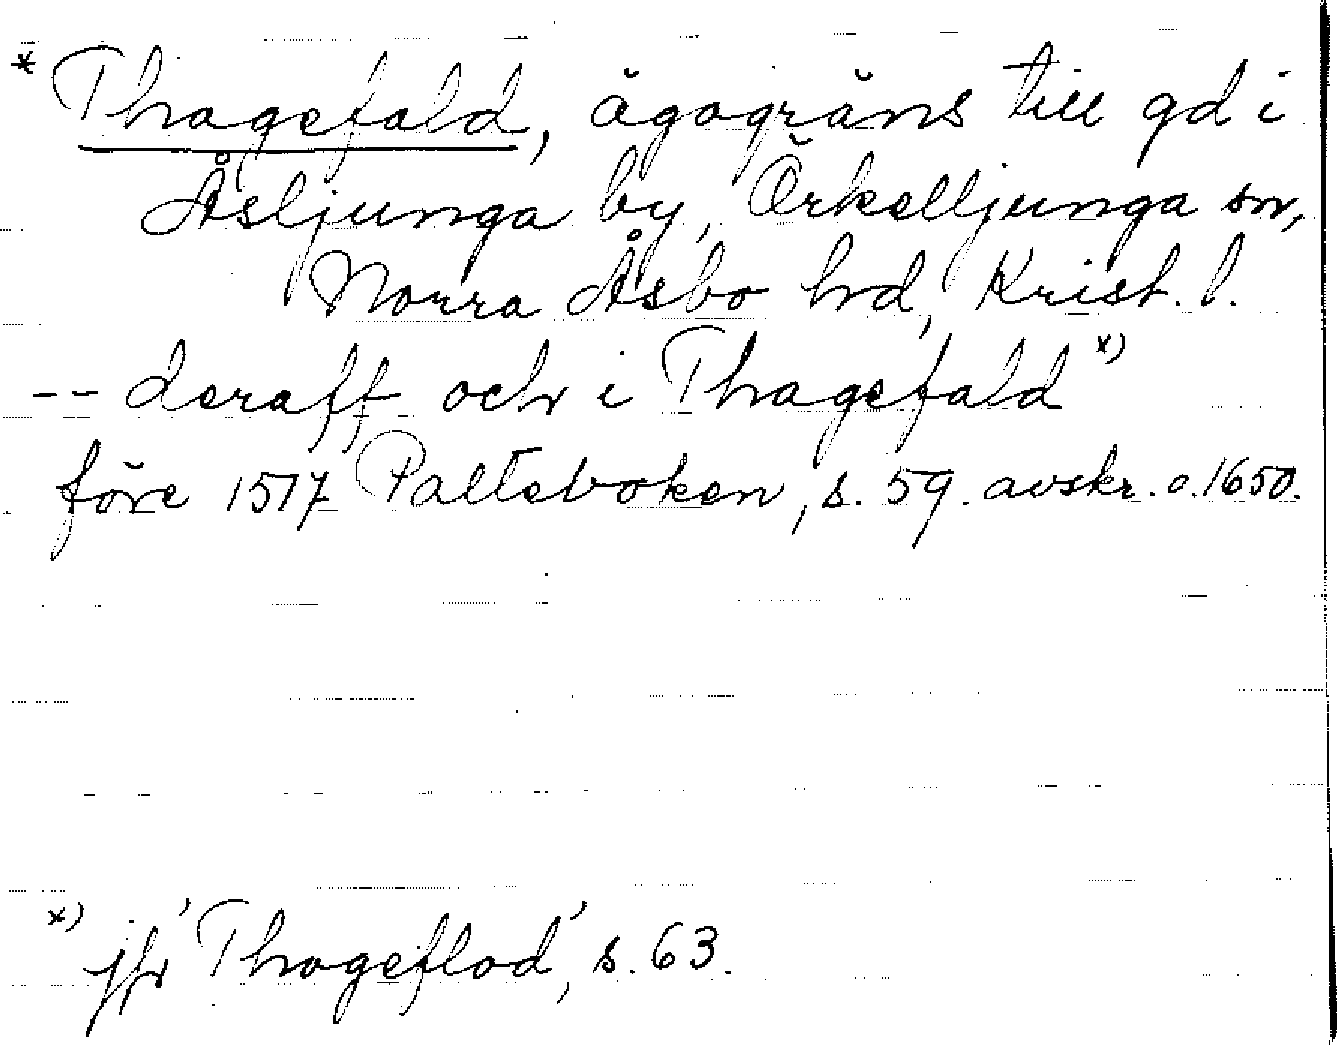 * Thagefald, ägogräns till gd i
Åsljunga by, Örkelljunga sn,
Norra Åsbo hd, Krist. l.
-- deraff och i Thagefald *)
före 1517 Palteboken, s. 59. avskr. o. 1650.
*) jfr 'Thageflod', s. 63.